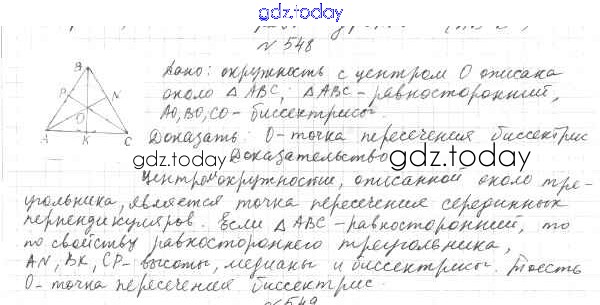 gdz.today
N 548
Дано: окружность с центром O описана
около △ABC; △ABC – равносторонний,
AO, BO, CO – биссектрисы.
Доказать: O – точка пересечения биссектрис
gdz.today Доказательство gdz.today
Центром окружности, описанной около тре-
угольника, является точка пересечения серединных
перпендикуляров. Если △ABC – равносторонний, то
по свойству равностороннего треугольника,
AN, BK, CP – высоты, медианы и биссектрисы. То есть
O – точка пересечения биссектрис.
N 549
B
P
N
O
A
K
C